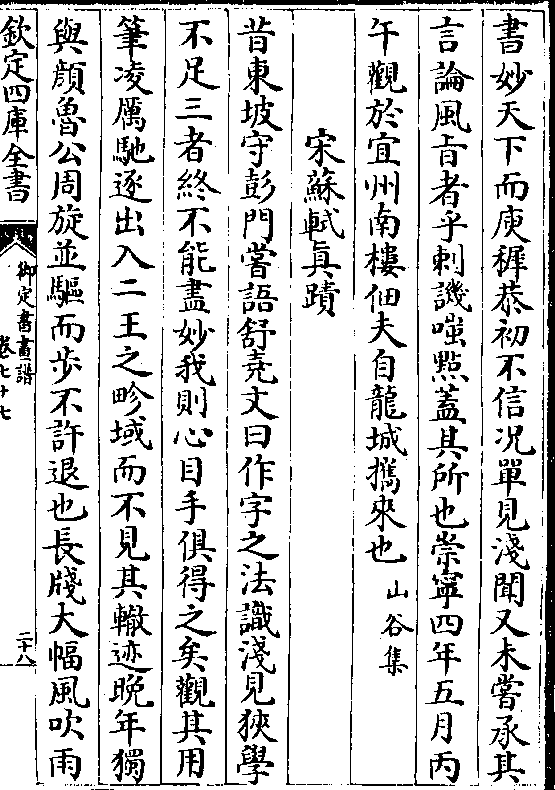 書妙天下而庾稺恭初不信况單見淺聞又未嘗承其
言論風旨者乎刺譏嗤㸃蓋其所也崇寧四年五月丙
午觀於宜州南樓佃夫自龍城攜來也 山谷集
宋蘇軾真蹟
昔東坡守彭門嘗語舒堯文曰作字之法識淺見狹學
不足三者終不能盡妙我則心目手俱得之矣觀其用
筆凌厲馳逐出入二王之畛域而不見其轍迹晚年獨
與顔魯公周旋並驅而步不許退也長牋大幅風吹雨
欽定四庫全書
御定書畫譜
卷七十七
二十八